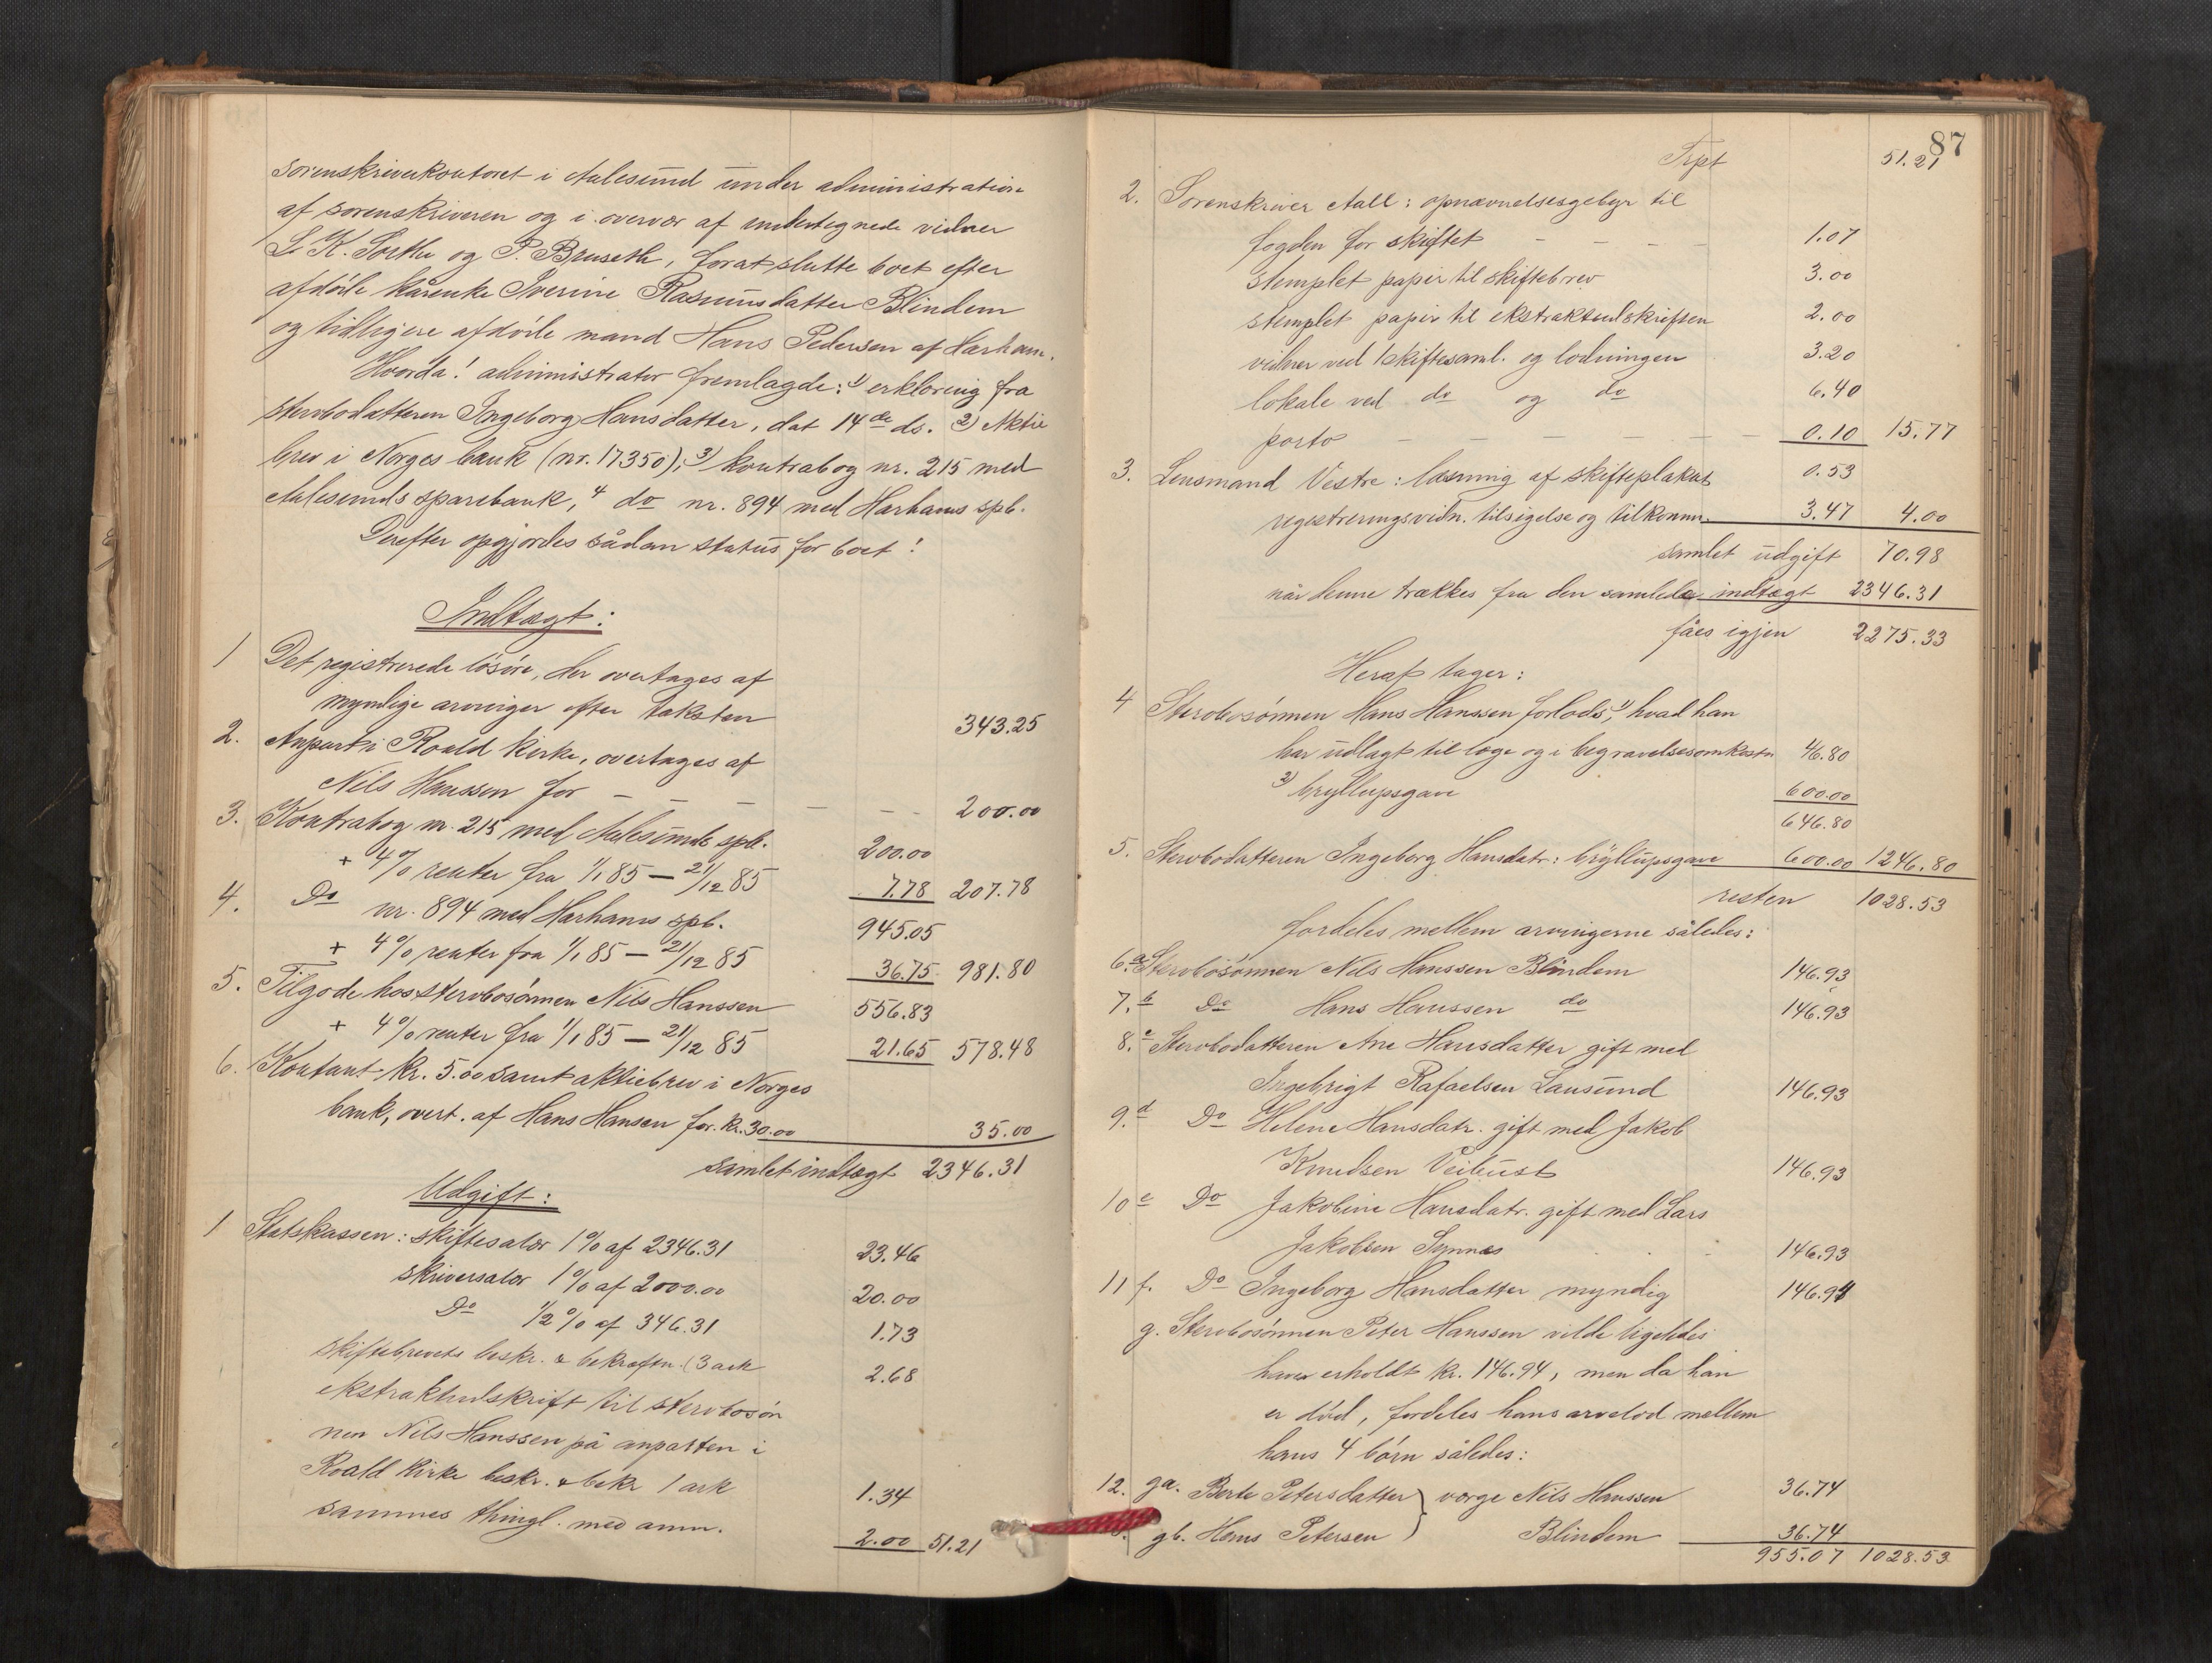 sorenskriverkontoret i Aalesund under administration
af sorenskriveren og i overvær af undertegnede vidner
L. K. Sorthe og P. Bruseth, forat slutte boet efter
afdöde kårenke Iverine Rasmusdatter Blindem
og tidligere afdöde mand Hans Pedersen af Harham.
Hvorda! administrator fremlagde: 1) erklæring fra
sterbodatteren Ingeborg Hansdatter, dat 14de ds. 2) Aktie
brev i Norges bank (nr. 17350); 3) kontrabog nr. 215 med
Aalesunds sparebank, 4 do nr. 894 med Harhams spb.
Derefter opgjordes sådan status for boet!
Indtægt:
1 Det registrerede lösöre, der overtages af
myndige arvinger efter taksten 343.25
2. Anpart i Roald kirke, overtages af
Nils Hanssen for – – – – – 200.00
3. Kontrabog nr. 215 med Aalesunds spb. 200.00
+ 4% renter fra 1/1 85 – 21/12 85 7.78 207.78
4. Do nr. 894 med Harhams spb. 945.05
+ 4% renter fra 1/1 85 – 21/12 85 36.75 981.80
5. Tilgode hos sterbosönnen Nils Hanssen 556.83
+ 4% renter fra 1/1 85 – 21/12 85 21.65 578.48
6. Kontant kr. 5.00 samt aktiebrev i Norges
bank, overt. af Hans Hansen for kr. 30.00 35.00
samlet indtægt 2346.31
Udgift:
1 Statskassen: skiftesalær 1% af 2346.31 23.46
skriversalær 1% af 2000.00 20.00
Do 1/2% af 346.31 1.73
skiftebrevets beskr. & bekræftn. (3 ark 2.68
ekstraktudskrift til sterbosön
nen Nils Hanssen på anparten i
Roald kirke beskr. & bekr 1 ark 1.34
sammes thingl. med anm. 2.00 51.21
87
Trpt 51.21
2. Sorenskriver Aall: opnævnelsesgebyr til
fogden for skiftet – – – – 1.07
stemplet papir til skiftebrev 3.00
stemplet papir til ekstraktudskriften 2.00
vidner ved 1 skiftesaml. og lodningen 3.20
lokale ved do og do 6.40
porto – – – – – – 0.10 15.77
3. Lensmand Vestre: læsning af skifteplakat 0.53
registreringsvidn. tilsigelse og tilkomm. 3.47 4.00
samlet udgift 70.98
når denne trækkes fra den samlede indtægt 2346.31
fåes igjen 2275.33
Heraf tager:
4 Sterbosönnen Hans Hanssen forlods, 1) hvad han
har udlagt til læge og i begravelsesomkostn 46.80
2) bryllupsgave 600.00
646.80
5. Sterbodatteren Ingeborg Hansdatr: bryllupsgave 600.00 1246.80
resten 1028.53
fordeles mellem arvingerne således:
6. a Sterbosönnen Nils Hanssen Blindem 146.93
7. b Do Hans Hanssen do 146.93
8. c Sterbodatteren Ane Hansdatter gift med
Ingebrigt Rafaelsen Lausund 146.93
9. d Do Helene Hansdatr. gift med Jakob
Knudsen Veibust 146.93
10 e Do Jakobine Hansdatr. gift med Lars
Jakobsen Synnæs 146.93
11 f. Do Ingeborg Hansdatter myndig 146.94
g. Sterbosönnen Peter Hanssen vilde ligeledes
have erholdt kr. 146.94, men da han
er död, fordeles hans arvelod mellem
hans 4 börn således:
12. ga. Berte Petersdatter } værge Nils Hanssen 36.74
gb. Hans Petersen } Blindem 36.74
955.07 1028.53